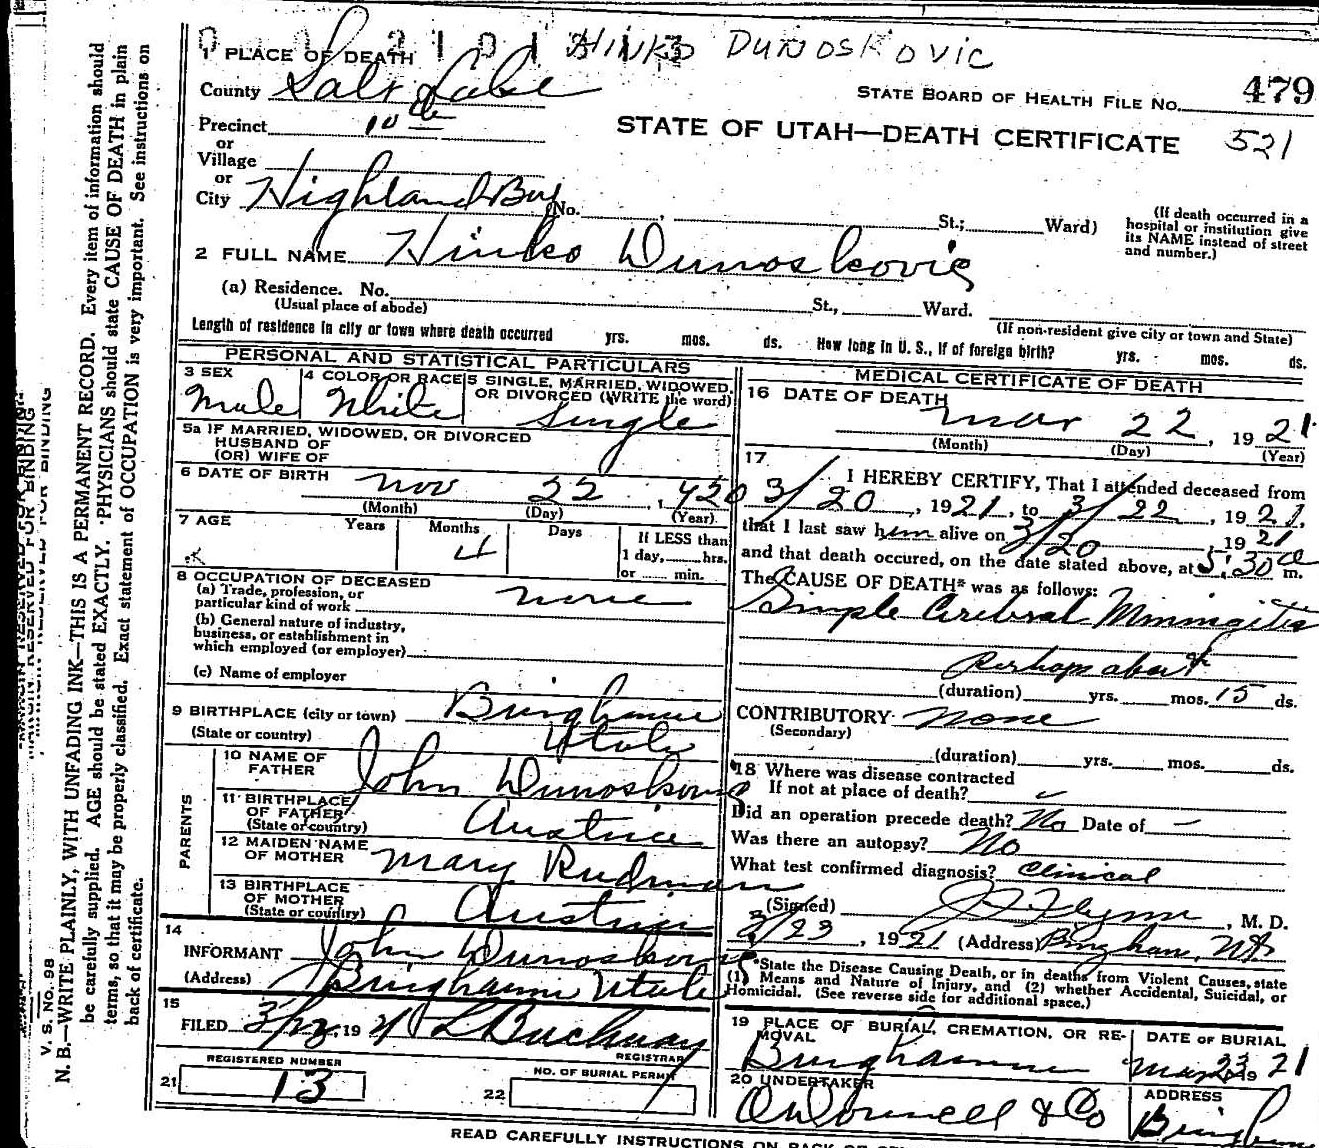 HINKO DUNOSKOVIC
1 PLACE OF DEATH
County Salt Lake
STATE BOARD OF HEALTH FILE NO. 479
Precinct 10th
STATE OF UTAH—DEATH CERTIFICATE 521
or
Village
or
City Highland Boy (No. , St.; Ward)
(If death occurred in a hospital or institution give its NAME instead of street and number.)
2 FULL NAME Hinko Dunoskovic
(a) Residence. No. St., Ward.
(Usual place of abode) (If non-resident give city or town and State)
Length of residence in city or town where death occurred yrs. mos. ds. How long in U. S., if of foreign birth? yrs. mos. ds.
PERSONAL AND STATISTICAL PARTICULARS
3 SEX Male
4 COLOR OR RACE White
5 SINGLE, MARRIED, WIDOWED, OR DIVORCED (WRITE the word) Single
5a IF MARRIED, WIDOWED, OR DIVORCED
HUSBAND OF
(OR) WIFE OF
6 DATE OF BIRTH Nov 22, 1920
(Month) (Day) (Year)
7 AGE Years Months 4 Days If LESS than
1 day, hrs.
or min.
8 OCCUPATION OF DECEASED
(a) Trade, profession, or
particular kind of work none
(b) General nature of industry,
business, or establishment in
which employed (or employer)
(c) Name of employer
9 BIRTHPLACE (city or town) Bingham
(State or country) Utah
PARENTS
10 NAME OF FATHER John Dunoskovic
11 BIRTHPLACE OF FATHER (State or country) Austria
12 MAIDEN NAME OF MOTHER Mary Rudman
13 BIRTHPLACE OF MOTHER (State or country) Austria
14
INFORMANT John Dunoskovic
(Address) Bingham Utah
15
FILED 19 21
REGISTRAR
REGISTERED NUMBER
21 13
NO. OF BURIAL PERMIT
22
MEDICAL CERTIFICATE OF DEATH
16 DATE OF DEATH
Mar 22, 1921
(Month) (Day) (Year)
17
I HEREBY CERTIFY, That I attended deceased from
3/20, 1921, to 3/22, 1921,
that I last saw him alive on 3/20, 1921
and that death occured, on the date stated above, at 5:30 a m.
The CAUSE OF DEATH* was as follows:
Simple Cerebral Miningitis
Perhaps about
(duration) yrs. mos. 15 ds.
CONTRIBUTORY none
(Secondary)
(duration) yrs. mos. ds.
18 Where was disease contracted
If not at place of death? –
Did an operation precede death? No Date of –
Was there an autopsy? No
What test confirmed diagnosis? Clinical
(Signed) Flynn, M. D.
3/23, 1921 (Address) Bingham, Ut
*State the Disease Causing Death, or in deaths from Violent Causes, state
(1) Means and Nature of Injury, and (2) whether Accidental, Suicidal, or
Homicidal. (See reverse side for additional space.)
19 PLACE OF BURIAL, CREMATION, OR REMOVAL
Bingham
DATE OF BURIAL
Mar 23 19 21
20 UNDERTAKER
O'Donnell & Co
ADDRESS
READ CAREFULLY INSTRUCTIONS ON BACK OF
MARGIN RESERVED FOR BINDING
V. S. NO. 98
N. B.—WRITE PLAINLY, WITH UNFADING INK—THIS IS A PERMANENT RECORD. Every item of information should
be carefully supplied. AGE should be stated EXACTLY. PHYSICIANS should state CAUSE OF DEATH in plain
terms, so that it may be properly classified. Exact statement of OCCUPATION is very important. See instructions on
back of certificate.